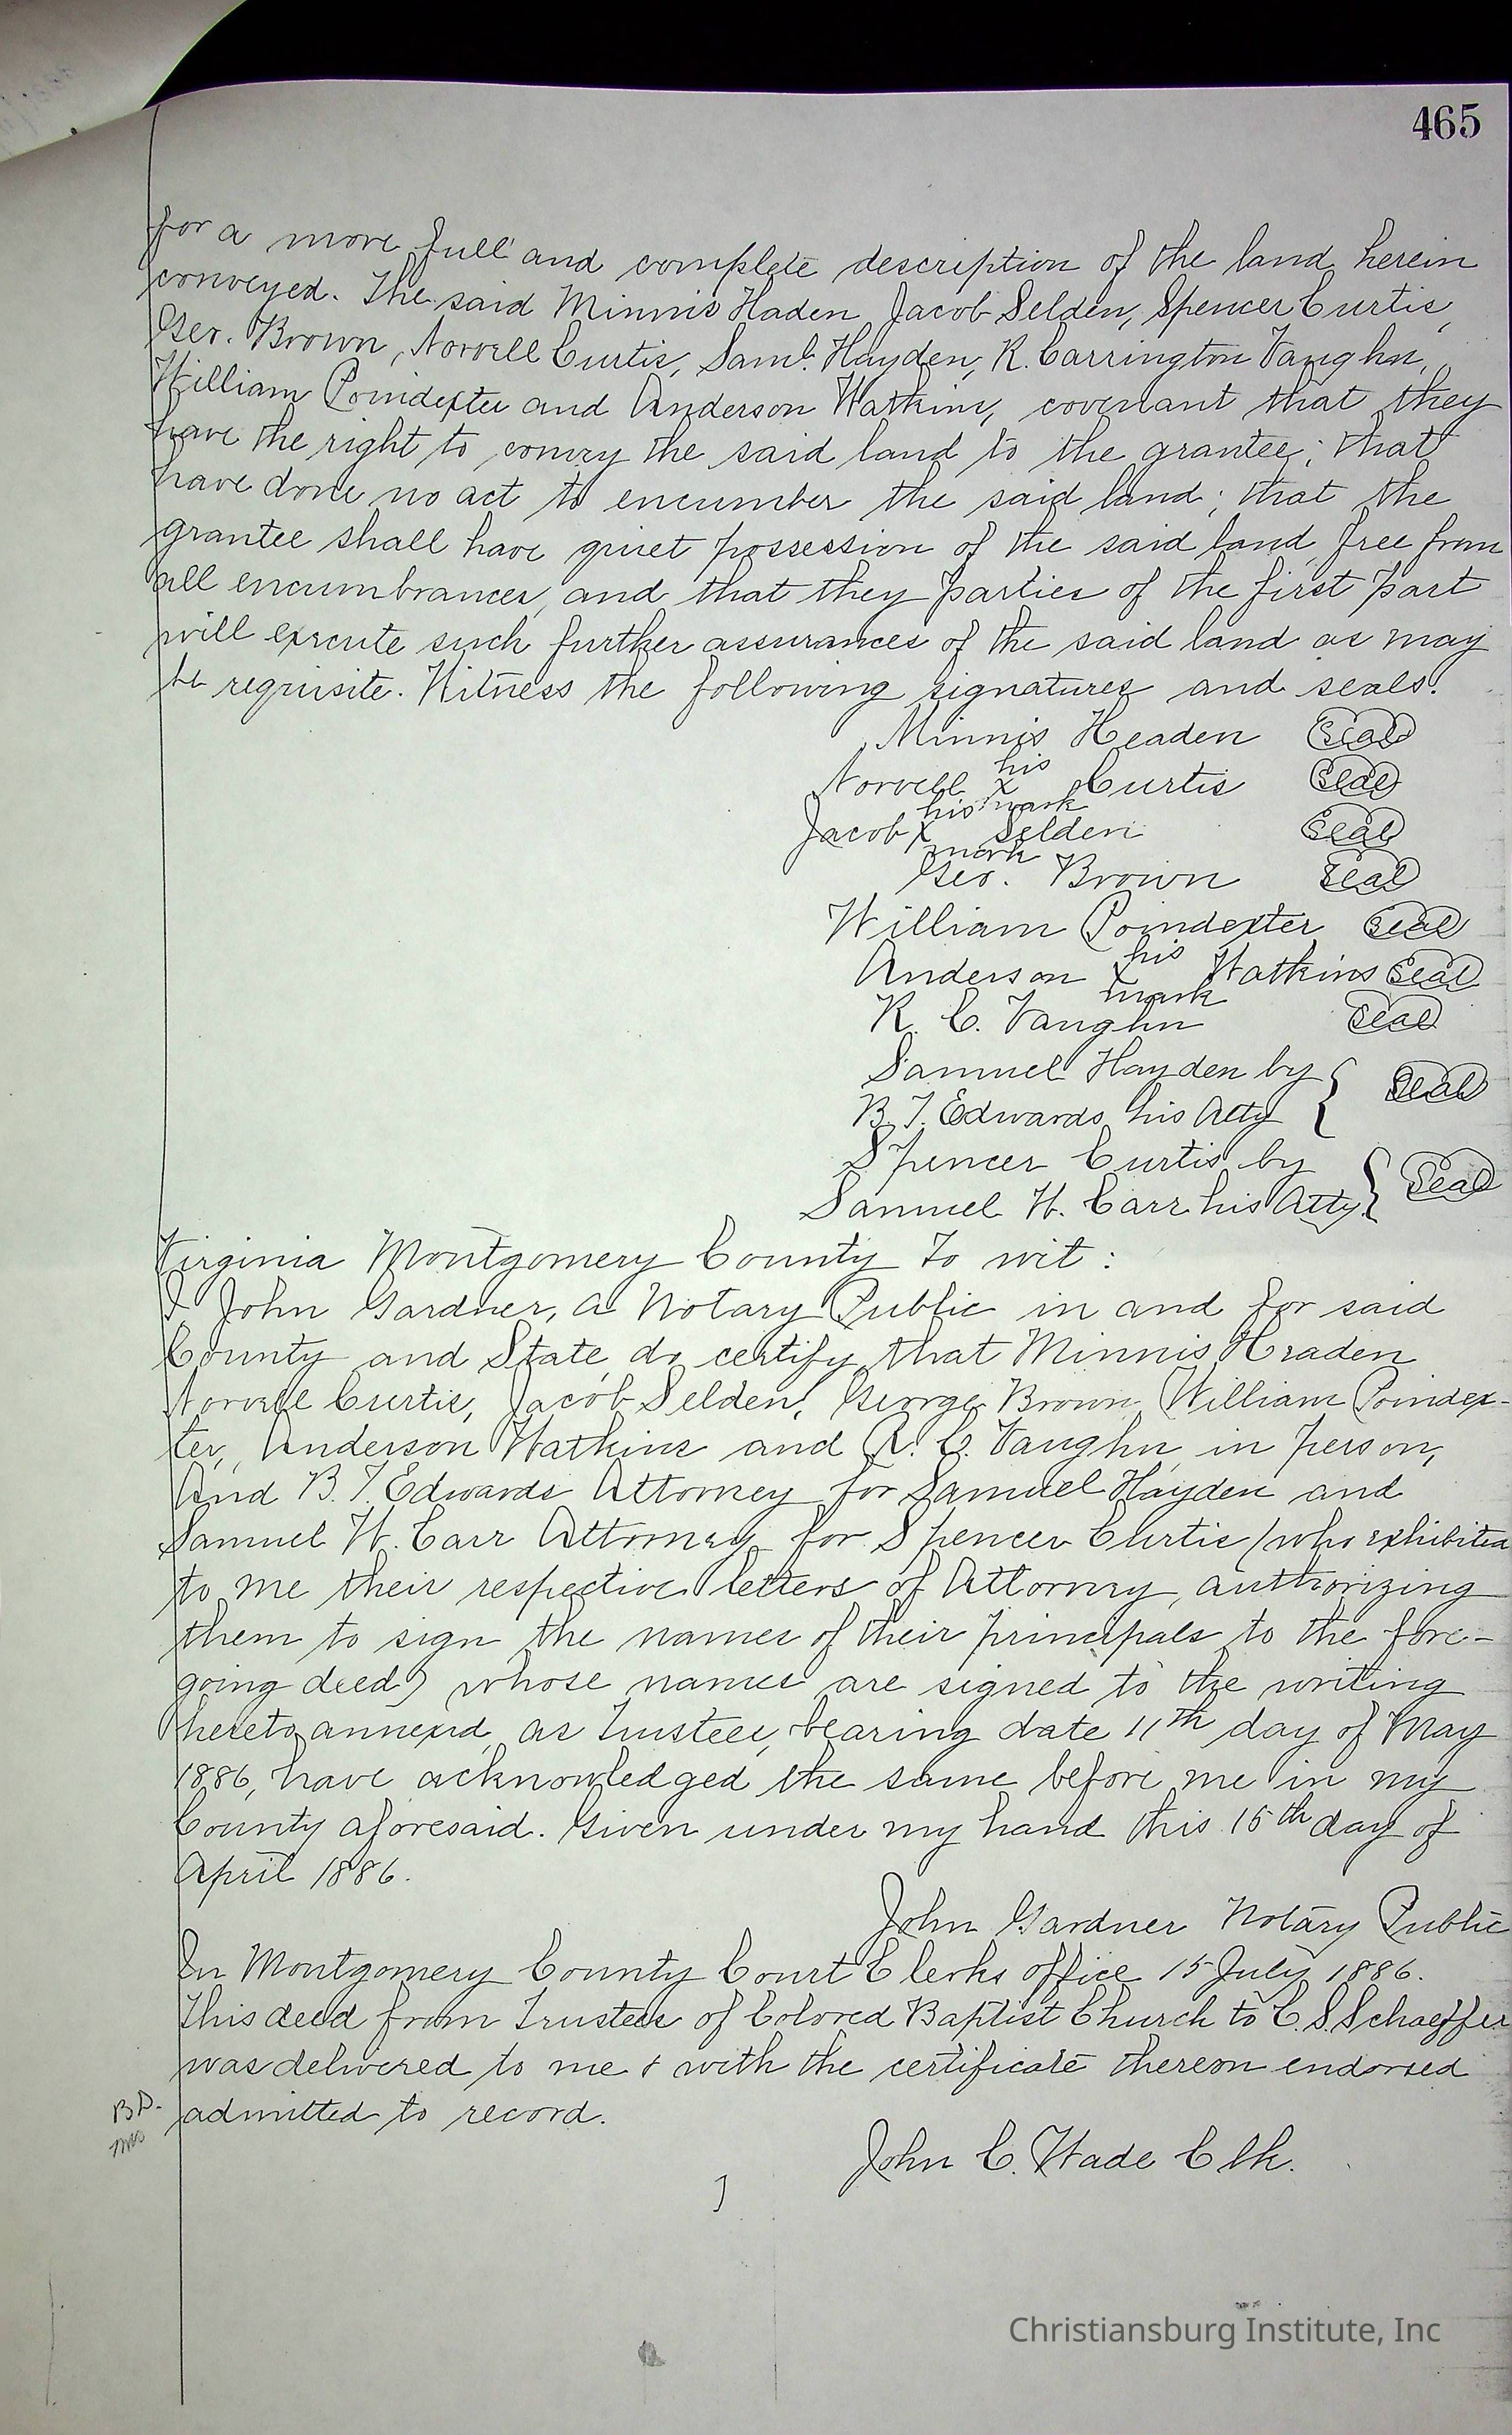 465
for a more full and complete description of the land herein
conveyed. The said Minnis Haden Jacob Selden, Spencer Curtis,
Geo. Brown, Norvell Curtis, Saml. Hayden, R. Carrington Vaughn,
William Poindexter and Anderson Watkins, covenant that they
have the right to convey the said land to the grantee; that
have done no act to encumber the said land; that the
grantee shall have quiet possession of the said land, free from
all encumbrances, and that they parties of the first part
will execute such further assurances of the said land as may
be requisite. Witness the following signatures and seals.
Minnis Headen Seal
Norvell his x mark Curtis Seal
Jacob his x mark Selden Seal
Geo. Brown Seal
William Poindexter Seal
Anderson his x mark Watkins Seal
R. C. Vaughn Seal
Samuel Hayden by
B. T. Edwards his Atty } Seal
Spencer Curtis by
Samuel H. Carr his Atty. } Seal
Virginia Montgomery County To wit:
I John Gardner, a Notary Public in and for said
County and State, do certify that Minnis Headen
Norvell Curtis, Jacob Selden, George Brown, William Poindex-
ter, Anderson Watkins and R. C. Vaughn, in person,
And B. T. Edwards Attorney for Samuel Hayden and
Samuel H. Carr Attorney for Spencer Curtis (who exhibited
to me their respective letters of Attorney, authorizing
them to sign the names of their principals to the fore-
going deed) whose names are signed to the writing
hereto annexed, as Trustees, bearing date 11th day of May
1886, have acknowledged the same before me in my
County aforesaid. Given under my hand this 15th day of
April 1886.
John Gardner Notary Public
In Montgomery County Court Clerks office 15 July 1886.
This deed from Trustees of Colored Baptist Church to C. S. Schaeffer
was delivered to me & with the certificate thereon endorsed
admitted to record.
John C. Wade Clk.
Christiansburg Institute, Inc